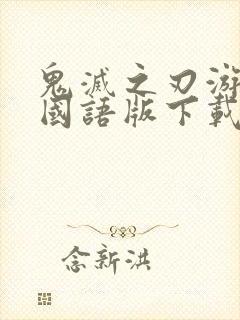 鬼滅之刃游
國語版下載
念新洪